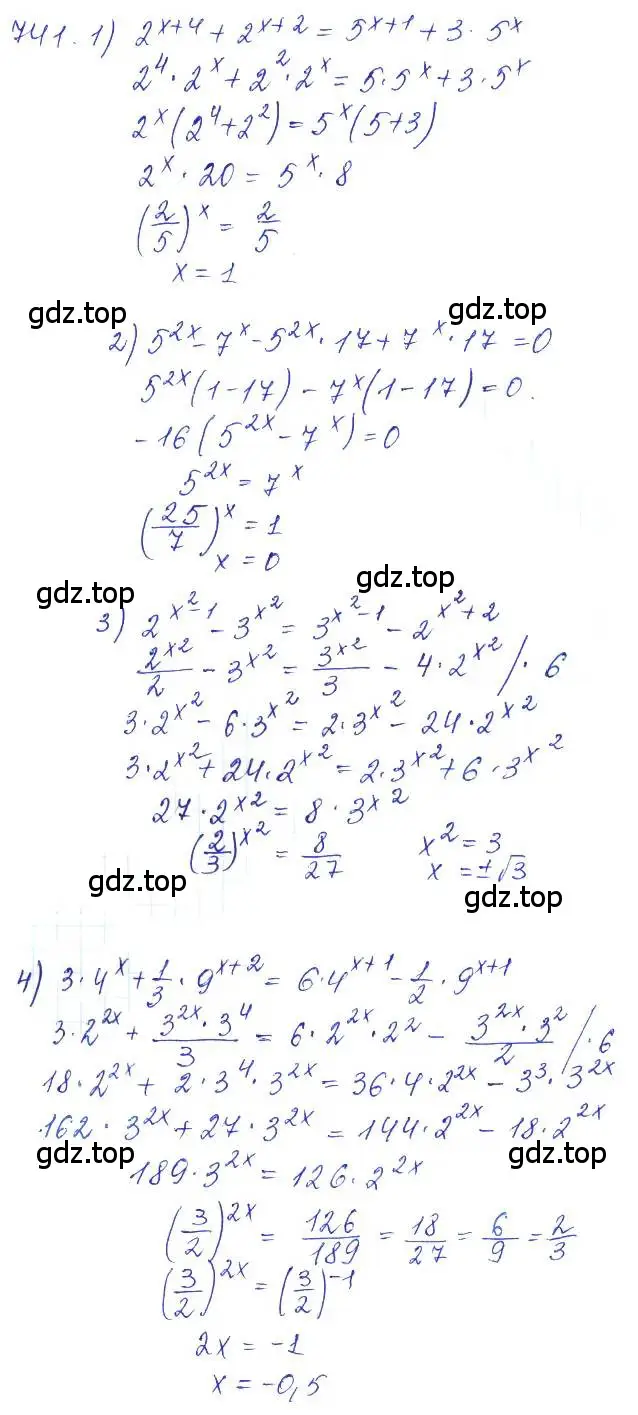 741. 1) 2^{x+4} + 2^{x+2} = 5^{x+1} + 3 · 5^x
2^4 · 2^x + 2^2 · 2^x = 5 · 5^x + 3 · 5^x
2^x (2^4 + 2^2) = 5^x (5+3)
2^x · 20 = 5^x · 8
(2/5)^x = 2/5
x = 1
gdz.top gdz.top
2) 5^{2x} - 7^x - 5^{2x} · 17 + 7^x · 17 = 0
5^{2x} (1-17) - 7^x (1-17) = 0.
-16 (5^{2x} - 7^x) = 0
5^{2x} = 7^x
(25/7)^x = 1
x = 0
gdz.top gdz.top
3) 2^{x^2-1} - 3^{x^2} = 3^{x^2-1} - 2^{x^2+2}
2^{x^2}/2 - 3^{x^2} = 3^{x^2}/3 - 4 · 2^{x^2} / · 6
3 · 2^{x^2} - 6 · 3^{x^2} = 2 · 3^{x^2} - 24 · 2^{x^2}
3 · 2^{x^2} + 24 · 2^{x^2} = 2 · 3^{x^2} + 6 · 3^{x^2}
27 · 2^{x^2} = 8 · 3^{x^2}
(2/3)^{x^2} = 8/27 x^2 = 3
x = ±√3
gdz.top gdz.top
4) 3 · 4^x + 1/3 · 9^{x+2} = 6 · 4^{x+1} - 1/2 · 9^{x+1}
3 · 2^{2x} + (3^{2x} · 3^4)/3 = 6 · 2^{2x} · 2^2 - (3^{2x} · 3^2)/2 / · 6
18 · 2^{2x} + 2 · 3^4 · 3^{2x} = 36 · 4 · 2^{2x} - 3^3 · 3^{2x}
162 · 3^{2x} + 27 · 3^{2x} = 144 · 2^{2x} - 18 · 2^{2x}
gdz.top gdz.top
189 · 3^{2x} = 126 · 2^{2x}
(3/2)^{2x} = 126/189 = 18/27 = 6/9 = 2/3
(3/2)^{2x} = (3/2)^{-1}
2x = -1
x = -0,5